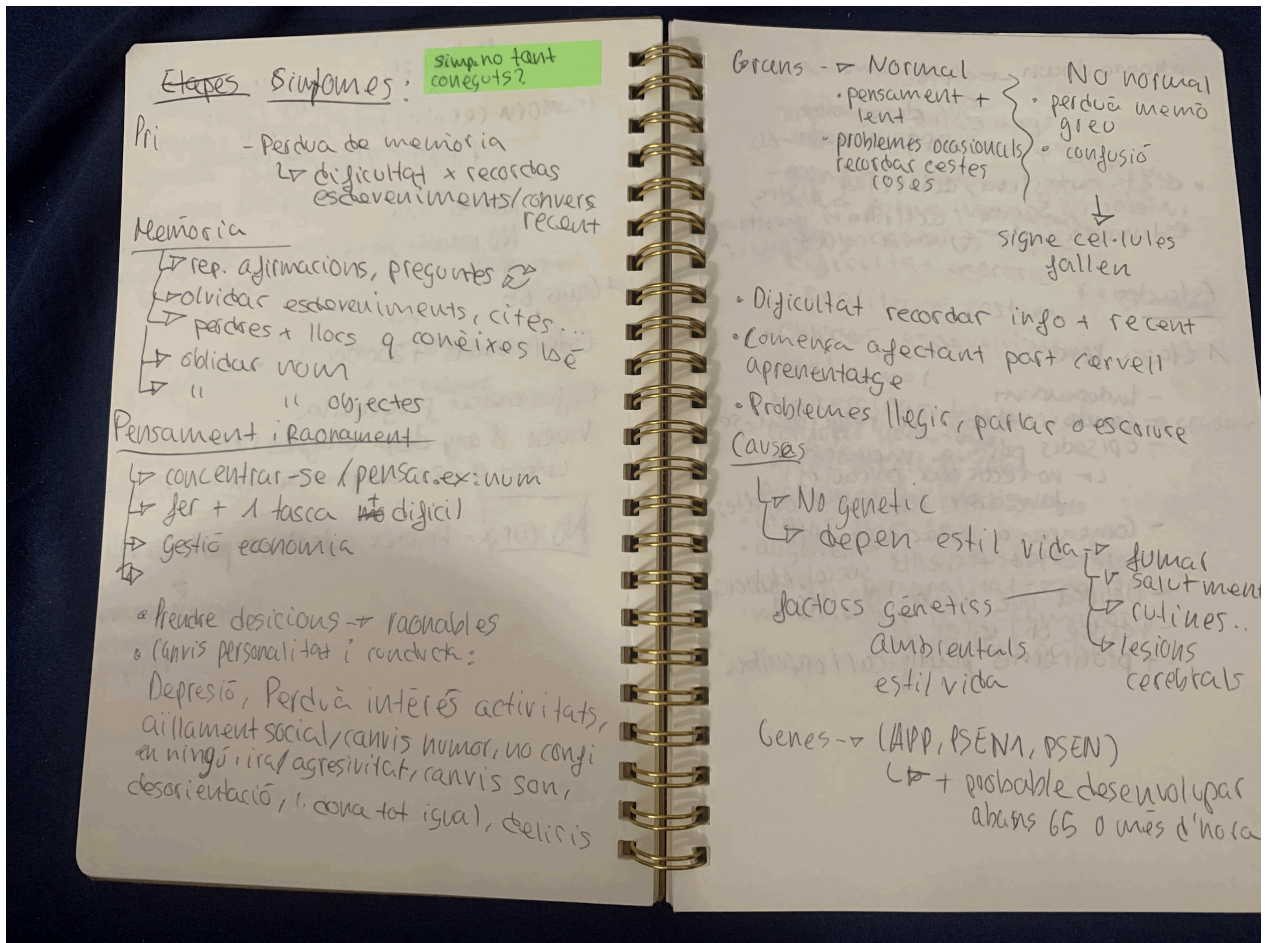 Etapes Simptomes:
simp. no tant
coneguts?
Pri
- Perdua de memòria
↳ dificultat x recordas
esdeveniments/convers
recent
Memòria
↳ rep. afirmacions, preguntes
↳ olvidar esdeveniments, cites...
↳ perdres + llocs q conèixes bé
↳ oblidar nom
↳ " " objectes
Pensament i Raonament
↳ concentrar-se / pensar. ex: num
↳ fer + 1 tasca + dificil
↳ gestió economia
• Prendre desicious → raonables
• canvis personalitat i conducta:
Depresió, Perduà interés activitats,
aillament social/canvis humor, no confi
en ningú, ira/agresivitat, canvis son,
desorientació, dona tot igual, deliris
Grans → Normal
• pensament +
lent
• problemes ocasionals
recordar certes
coses
No normal
• perduà memò
greu
• confusió
↓
signe cel·lules
fallen
• Dificultat recordar info + recent
• Comença afectant part cervell
aprenentatge
• Problemes llegir, parlar o escriure
Causes
↳ No genetic
↳ depen estil vida → fumar
salut ment
rutines..
lesions
cerebrals
factors gènetiss
ambientals
estil vida
Genes → (APP, PSEN1, PSEN)
↳ + probable desenvolupar
abans 65 o més d'hora